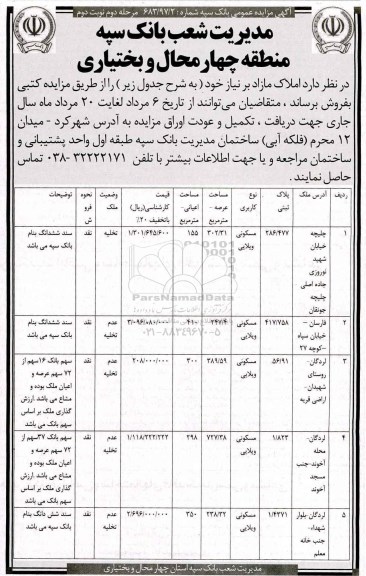 آگهی مزایده عمومی بانک سپه شماره: ۶۸۳/۹۷/۲ مرحله دوم نوبت دوم
مدیریت شعب بانک سپه
منطقه چهار محال و بختیاری
در نظر دارد املاک مازاد بر نیاز خود ( به شرح جدول زیر ) را از طریق مزایده کتبی
بفروش برساند ، متقاضیان می‌توانند از تاریخ ۶ مرداد لغایت ۲۰ مرداد ماه سال
جاری جهت دریافت ، تکمیل و عودت اوراق مزایده به آدرس شهرکرد - میدان
۱۲ محرم (فلکه آبی) ساختمان مدیریت بانک سپه طبقه اول واحد پشتیبانی و
ساختمان مراجعه و یا جهت اطلاعات بیشتر با تلفن ۳۲۲۲۲۱۷۱ -۰۳۸ تماس
حاصل نمایند .
ردیف آدرس ملک پلاک ثبتی نوع کاربری مساحت عرصه - مترمربع مساحت اعیانی- مترمربع قیمت کارشناسی(ریال) باتخفیف ۲۰٪ وضعیت ملک نحوه فروش توضیحات
۱ چلیچه خیابان شهید نوروزی جاده اصلی چلیچه جونقان ۲۸۶/۴۷۷ مسکونی ویلایی ۳۰۲/۳۱ ۱۵۵ ۱/۳۰۱/۶۴۵/۶۰۰ عدم تخلیه نقد سند ششدانگ بنام بانک سپه می باشد
۲ فارسان - خیابان سپاه -کوچه ۲۷ ۴۱۷/۷۵۸ مسکونی ویلایی ۲۴۷/۴ ۴۱۰ ۳/۰۹۶/۰۸۰/۰۰۰ عدم تخلیه نقد سند ششدانگ بنام بانک سپه می باشد
۳ لردگان- روستای شهیدان- اراضی قریه ۵۶/۹۱ مسکونی ویلایی ۳۸۹/۵۹ ۳۰۰ ۲۰۸/۰۰۰/۰۰۰ عدم تخلیه نقد سهم بانک ۱۶سهم از ۷۲ سهم عرصه و اعیان ملک بوده و مشاع می باشد .ارزش گذاری ملک بر اساس سهم بانک می باشد
۴ لردگان- محله آخوند-جنب مسجد آخوند ۱/۸۲۳ مسکونی ویلایی ۷۲۷/۳۸ ۲۹۸ ۱/۱۱۸/۲۲۲/۲۲۲ عدم تخلیه نقد سهم بانک ۳۷سهم از ۷۲ سهم عرصه و اعیان ملک بوده و مشاع می باشد.ارزش گذاری ملک بر اساس سهم بانک می باشد
۵ لردگان-بلوار شهدا- جنب خانه معلم ۱/۴۳۷۱ مسکونی ویلایی ۲۳۸/۳۲ ۳۵۰ ۲/۶۹۶/۰۰۰/۰۰۰ عدم تخلیه نقد سند شش دانگ بنام بانک سپه می باشد
ParsNamadData
۰۲۱-۸۸۳۴۹۶۷۰-۵
مدیریت شعب بانک سپه استان چهار محال و بختیاری